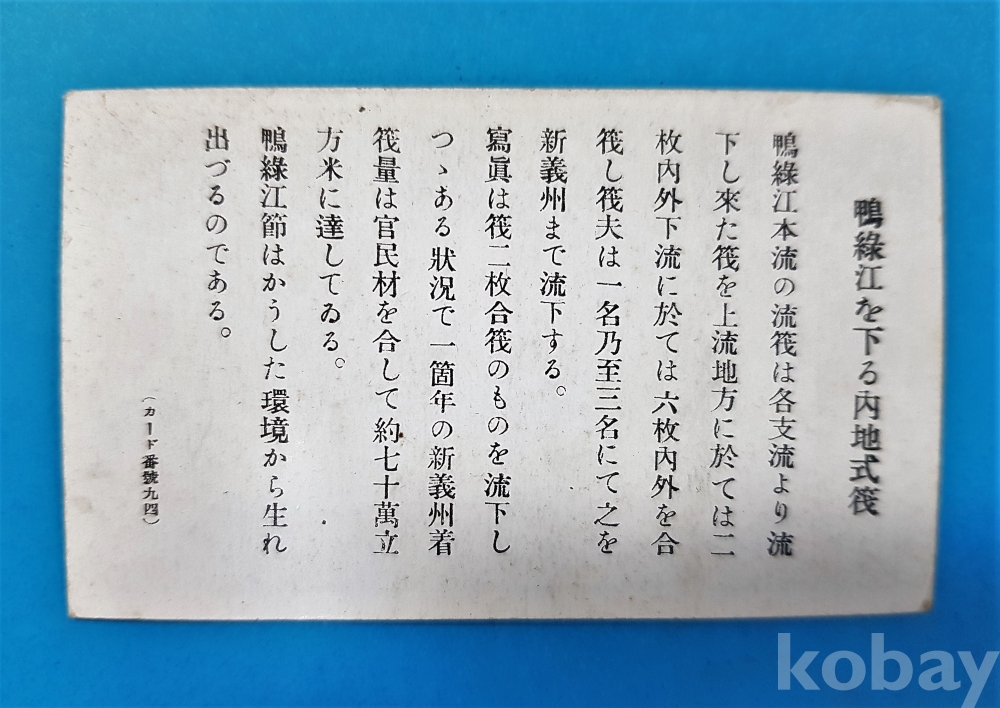 鴨綠江を下る內地式筏
鴨綠江本流の流筏は各支流より流
下し來た筏を上流地方に於ては二
枚內外下流に於ては六枚內外を合
筏し筏夫は一名乃至三名にて之を
新義州まで流下する。
寫眞は筏二枚合筏のものを流下し
つゝある狀況で一箇年の新義州着
筏量は官民材を合して約七十萬立
方米に達してゐる。
鴨綠江節はかうした環境から生れ
出づるのである。
(カード番號九四)
kobay